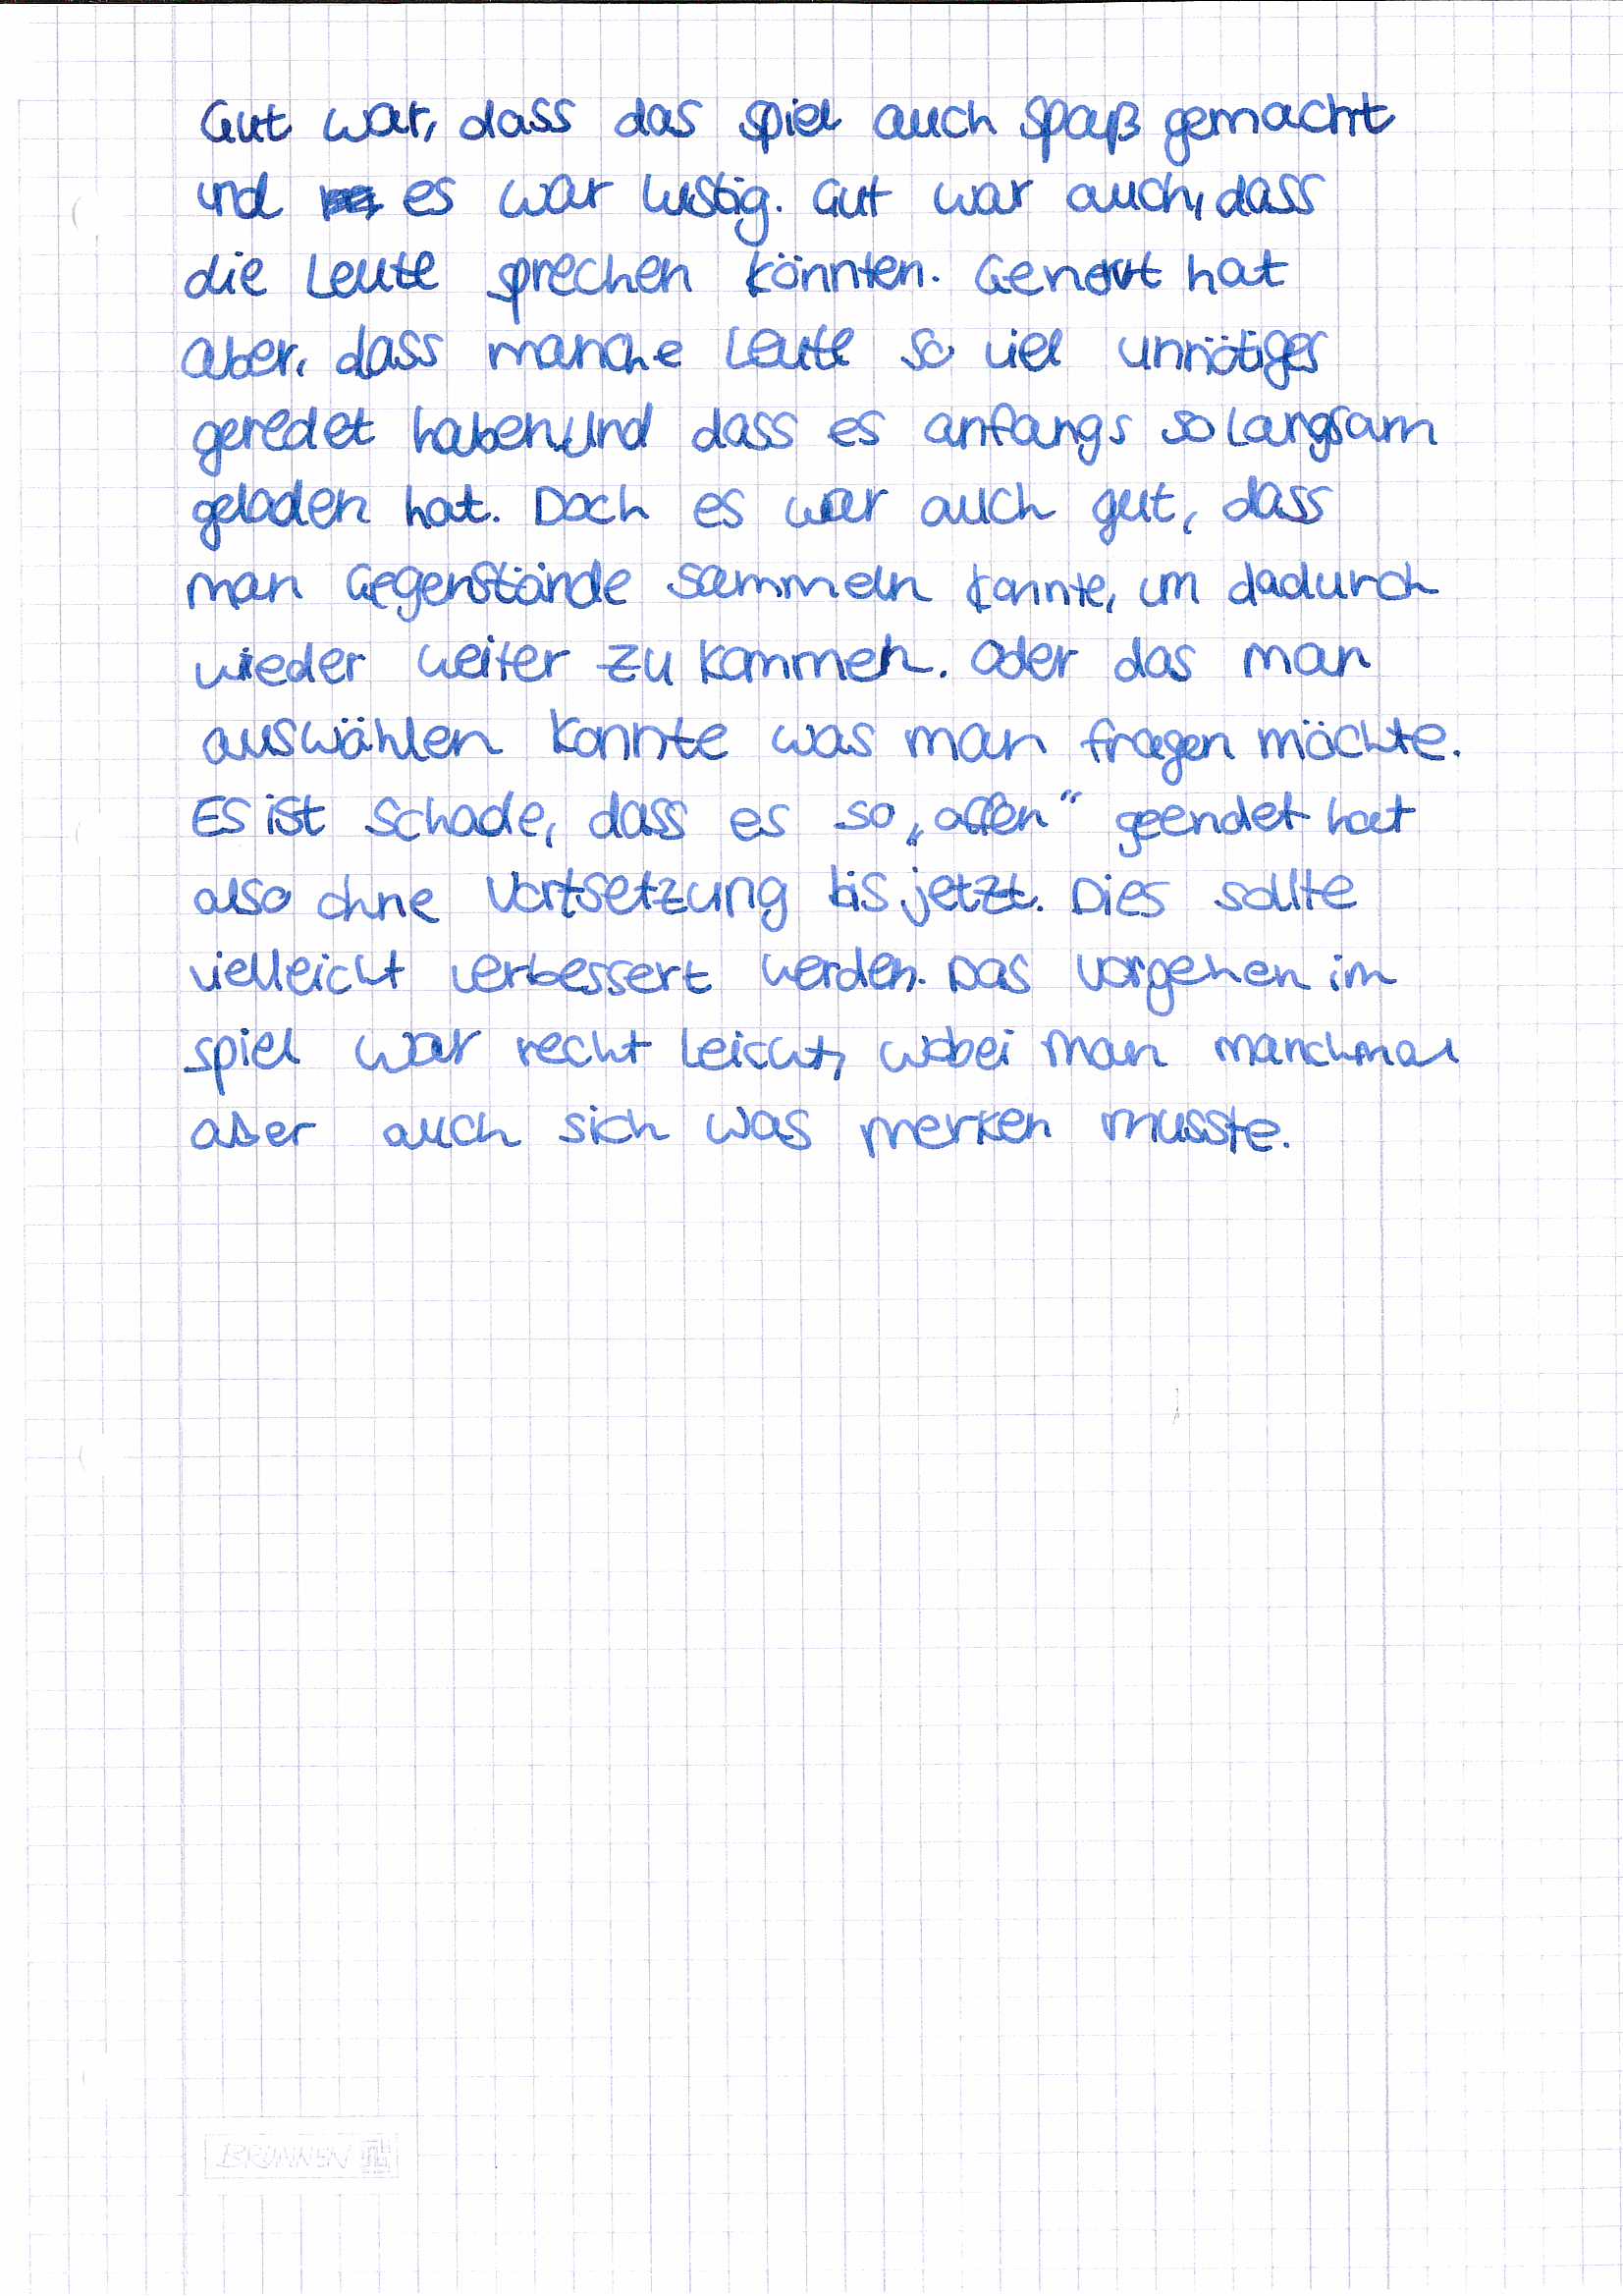 Gut war, dass das Spiel auch Spaß gemacht
und es war lustig. Gut war auch, dass
die Leute sprechen könnten. Genervt hat
aber, dass manche Leute so viel unnötiges
geredet haben und dass es anfangs so langsam
geladen hat. Doch es war auch gut, dass
man Gegenstände sammeln konnte, um dadurch
wieder weiter zu kommen. Oder das man
auswählen konnte was man fragen möchte.
Es ist Schade, dass es so „offen“ geendet hat
also ohne Vortsetzung bis jetzt. Dies sollte
vielleicht verbessert werden. Das Vorgehen im
Spiel war recht leicht, wobei man manchmal
aber auch sich was merken musste.
BRUNNEN